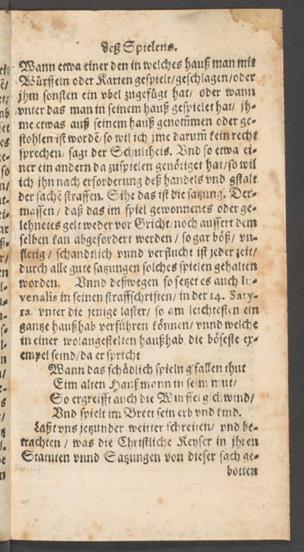 deß Spielens.
Wann etwa einer den in welches hauß man mit
Würffeln oder Karten gespielt/geschlagen/oder
jhm sonsten ein vbel zugefügt hat/ oder wann
vnter das man in seinem hauß gespielet hat/ jh-
me etwas auß seinem hauß genommen oder ge-
stohlen ist wordē/ so wil ich jme darum̄ kein recht
sprechen/ sagt der Schultheis. Vnd so etwa ei-
ner ein andern da zuspielen genötiget hat/ so wil
ich jhn nach erforderung deß handels vnd gstalt
der sachē straffen. Sihe das ist die satzung. Der-
massen/ daß das im spiel gewonnenes oder ge-
lehnetes gelt weder vor Gricht/ noch aussert dem
selben kan abgefordert werden/ so gar böß/ vn-
fletig/ schandtlich vnnd verflucht ist jeder zeit/
durch alle gute satzungen solches spielen gehalten
worden. Vnnd deßwegen so setzet es auch Iu-
venalis in seinen straffschrifften/ in der 14. Saty-
ra vnter die jenige laster/ so am leichtesten ein
gantze haußhab verführen können/ vnnd welche
in einer wolangestelten haußhab die böseste ex-
empel seind/ da er spricht
Wann das schädlich spieln g'fallen thut
Eim alten Haußmann in seim mut/
So ergreifft auch die Würffel gschwind/
Vnd spielt im Brett sein erb vnd kind.
Laßt vns jetzunder weitter schreiten/ vnd be-
trachten/ was die Christliche Keyser in jhren
Statuten vnnd Satzungen von dieser sach ge-
botten